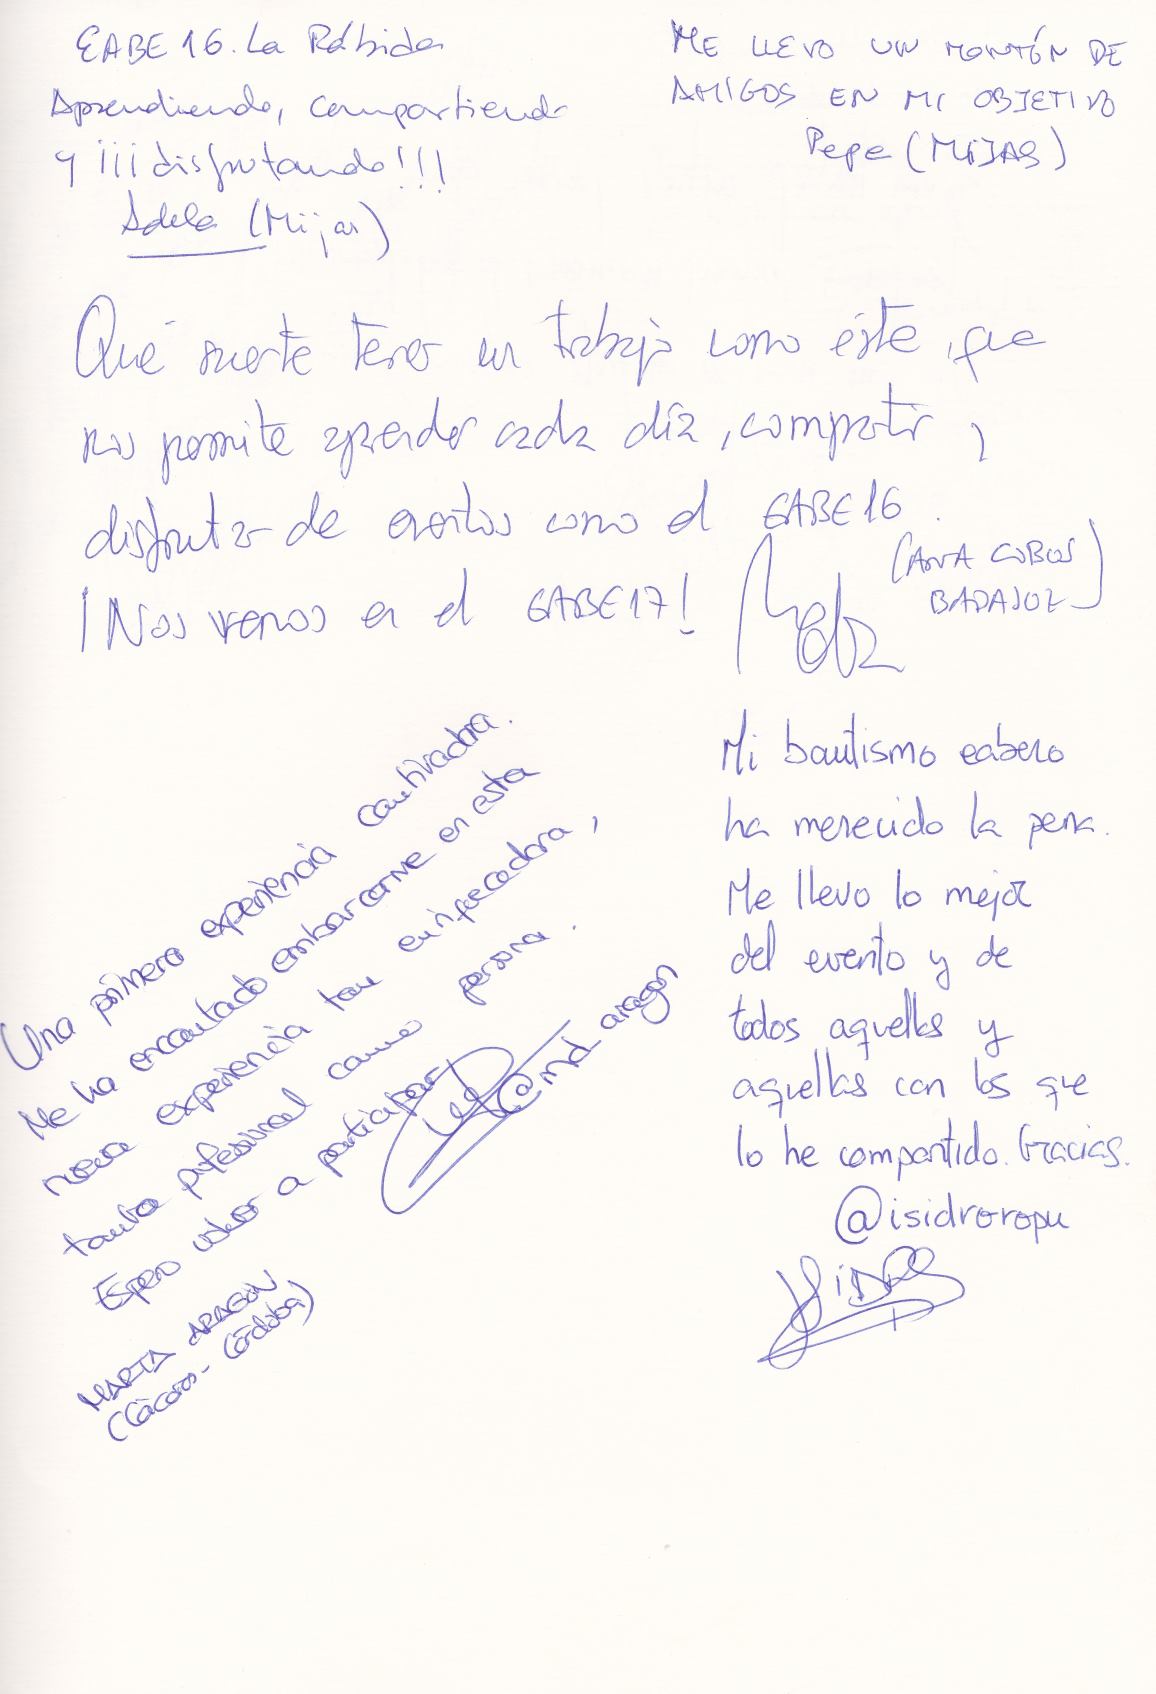 EABE 16. La Rábida
Aprendiendo, compartiendo
y ¡¡¡disfrutando!!!
Adela (Mijas)
ME LLEVO UN MONTÓN DE
AMIGOS EN MI OBJETIVO
Pepe (MIJAS)
Qué suerte tener un trabajo como éste, que
nos permite aprender cada día, compartir,
disfrutar de eventos como el EABE16.
¡Nos vemos en el EABE17!
(ANA COBOS
BADAJOZ)
Una primera experiencia cautivadora.
Me ha encantado embarcarme en esta
nueva experiencia tan enriquecedora,
tanto profesional como persona.
Espero volver a participar
@md_aragon
MARTA ARAGÓN
(Cáceres - Córdoba)
Mi bautismo eabero
ha merecido la pena.
Me llevo lo mejor
del evento y de
todos aquellos y
aquellas con los que
lo he compartido. Gracias.
@isidroropu
ISIDRO